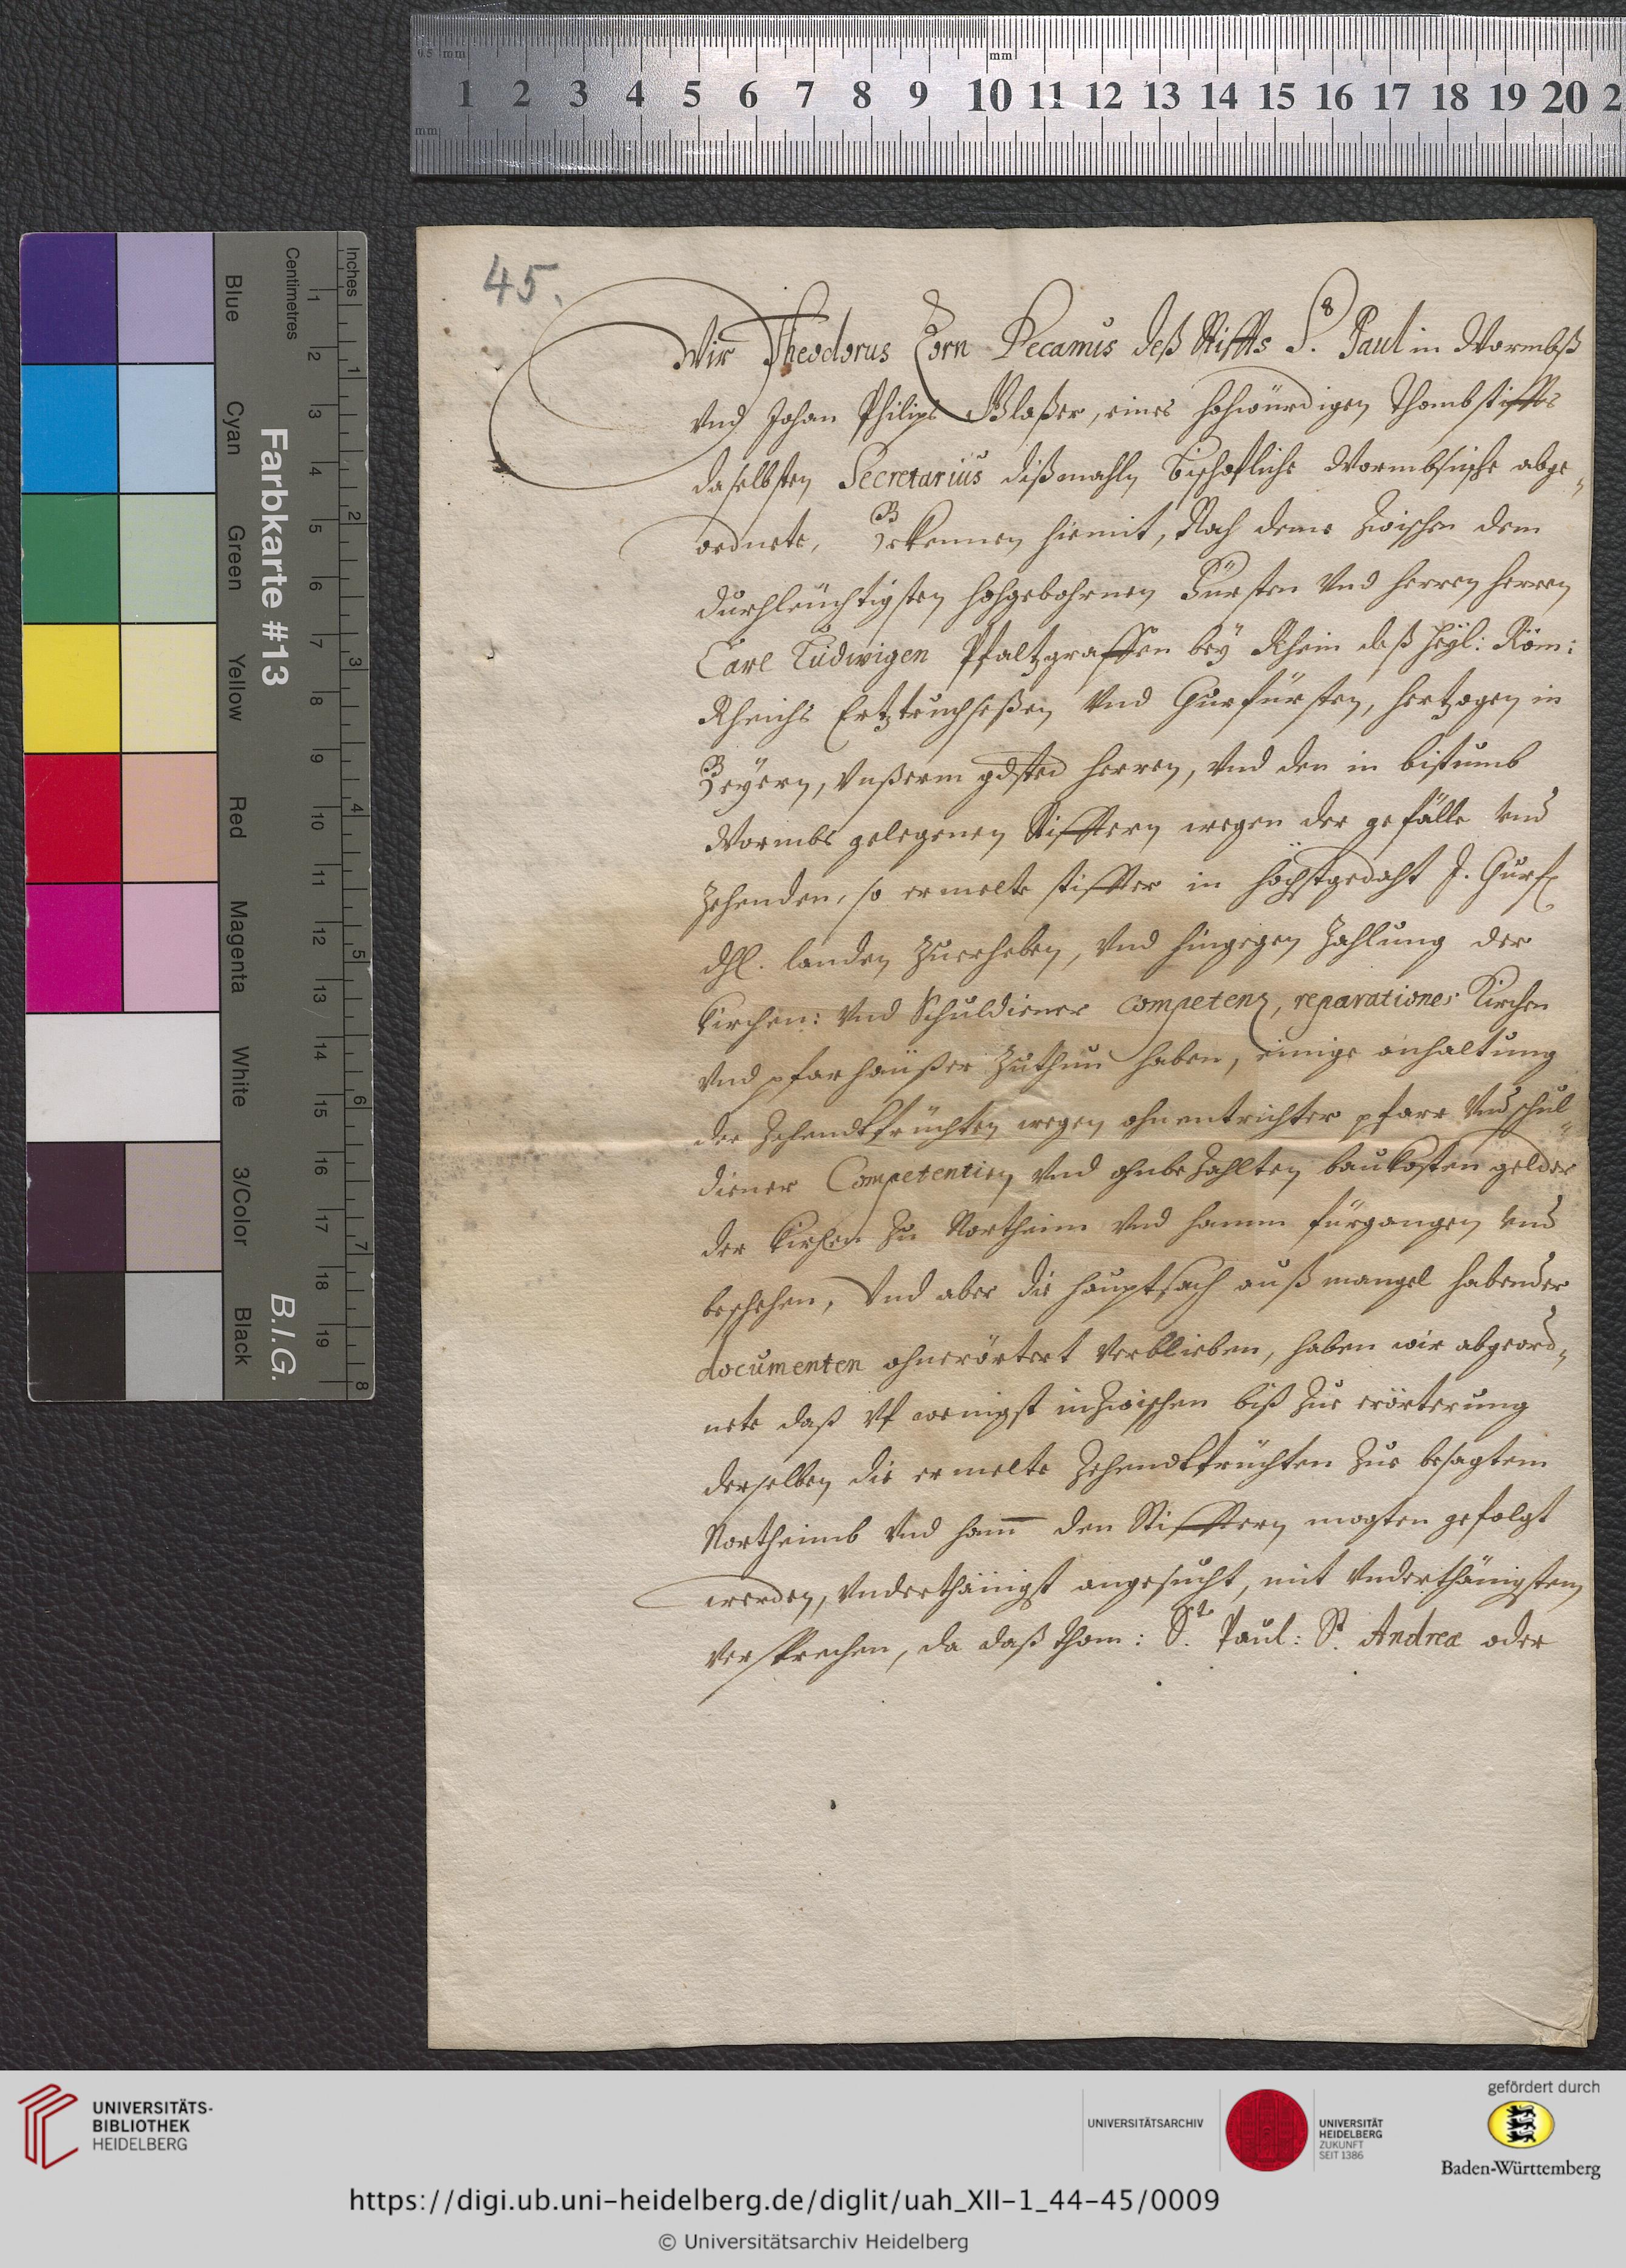 0.5 mm
mm
1 2 3 4 5 6 7 8 9 10 11 12 13 14 15 16 17 18 19 20 2
mm
Inches
Centimetres
Farbkarte #13
B.I.G.
Blue
Cyan
Green
Yellow
Red
Magenta
White
3/Color
Black
45.
Wir Theodorus Zorn Decanus deß Stiffts S. Paul in Wormbß
Vnd Johan Philips Blaßer, eines hohwürdigen Thombstiffts
daselbsten Secretarius dißmahln Bischofliche Wormbsische abge„
ordnete, Bekennen hiemit, Nach deme zwischen dem
durchleuchtigsten hohgebohrnen Fürsten Vnd herren herren
Carl Ludwigen Pfaltzgraffen bey Rhein deß heyl: Röm:
Rheichs Ertztruchseßen Vnd Churfürsten, hertzogen in
Beyern, Vnßerm gdsten herren, Vnd den in bistumb
Wormbs gelegenen Stifftern wegen der gefälle vnd
Zehenden, so ermelte stiffter in höchstgedaht J. Churf
dhl. landen zuerheben, Vnd hingegen zahlung der
kirchen: Vnd Schuldiener competenz, reparationes Kirchen
Vnd pfarhäußer zuthun haben, einige anhaltung
der Zehendtfrüchten wegen ohnentrichter pfarr Vnd schul„
diener Competentien Vnd ohnbezahlten baukosten gelder
der kirchen zu Northeim Vnd hamm fürgangen vnd
beschehen, Vnd aber die hauptsach auß mangel habender
documenten ohnerörtert verblieben, haben wir abgeord„
nete daß vf wenigst inzwischen biß zur erörterung
derselben die ermelte Zehendtfrüchten zue besagtem
Northeimb Vnd ham̄ den Stifftern mogten gefolgt
werden, Vnderthänigst angesucht, mit Vnderthänigstem
Versprechen, da daß thom: St. Paul: St. Andreæ oder
UNIVERSITÄTS-
BIBLIOTHEK
HEIDELBERG
UNIVERSITÄTSARCHIV
UNIVERSITÄT
HEIDELBERG
ZUKUNFT
SEIT 1386
gefördert durch
Baden-Württemberg
https://digi.ub.uni-heidelberg.de/diglit/uah_XII-1_44-45/0009
© Universitätsarchiv Heidelberg